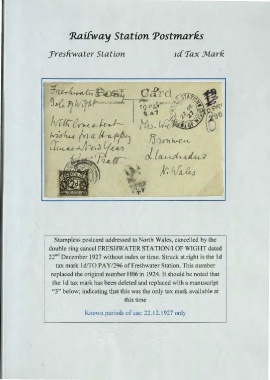 Railway Station Postmarks
Freshwater Station 1d Tax Mark
Post Card
Freshwater
Isle of Wight
With Complts best
wishes for a Happy
Xmas & New Year
Pratt
Bronwen
Llandudno
N. Wales
Stampless postcard addressed to North Wales, cancelled by the
double ring cancel FRESHWATER STATION/I OF WIGHT dated
22nd December 1927 without index or time. Struck at right is the 1d
tax mark 1d/TO PAY/296 of Freshwater Station. This number
replaced the original number H06 in 1924. It should be noted that
the 1d tax mark has been deleted and replaced with a manuscript
"3" below; indicating that this was the only tax mark available at
this time
Known periods of use: 22.12.1927 only